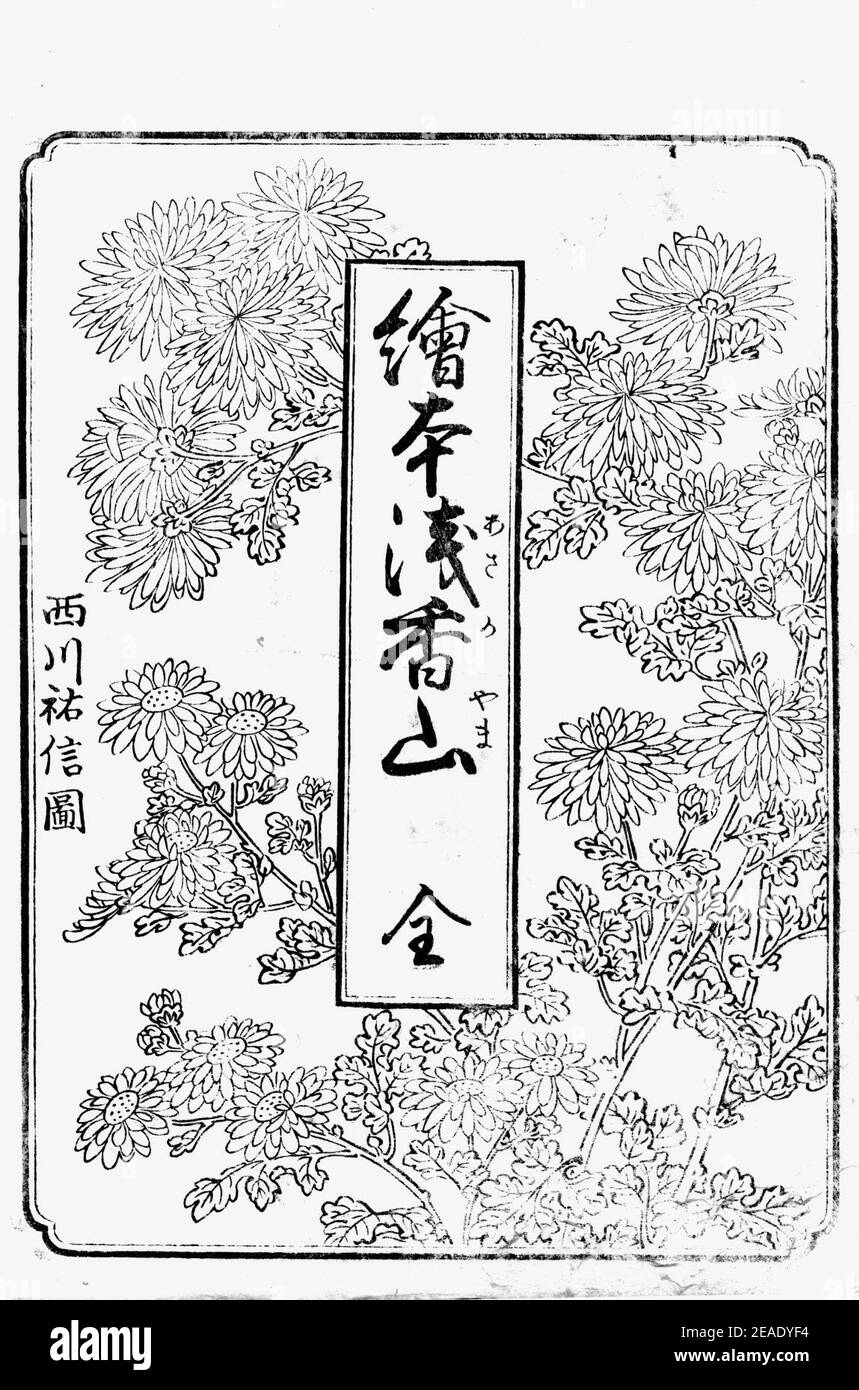 繪本浅香山 全
あさか
やま
西川祐信圖
alamy
alamy
Image ID: 2EADYF4
www.alamy.com